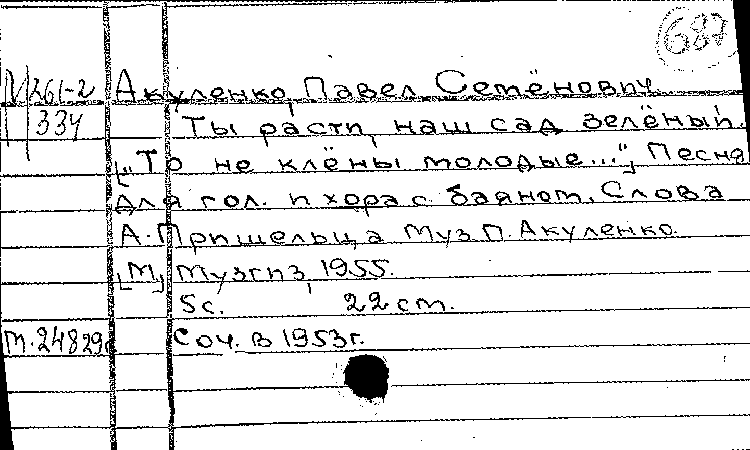 687
261-2 Акуленко, Павел Семёнович.
334 Ты расти, наш сад зелёный.
["То не клёны молодые..."] Песня
для гол. и хора с баяном. Слова
А. Пришельца Муз. П. Акуленко.
[М] Музгиз, 1955.
5с. 22 см.
т.24829 Соч. в 1953г.